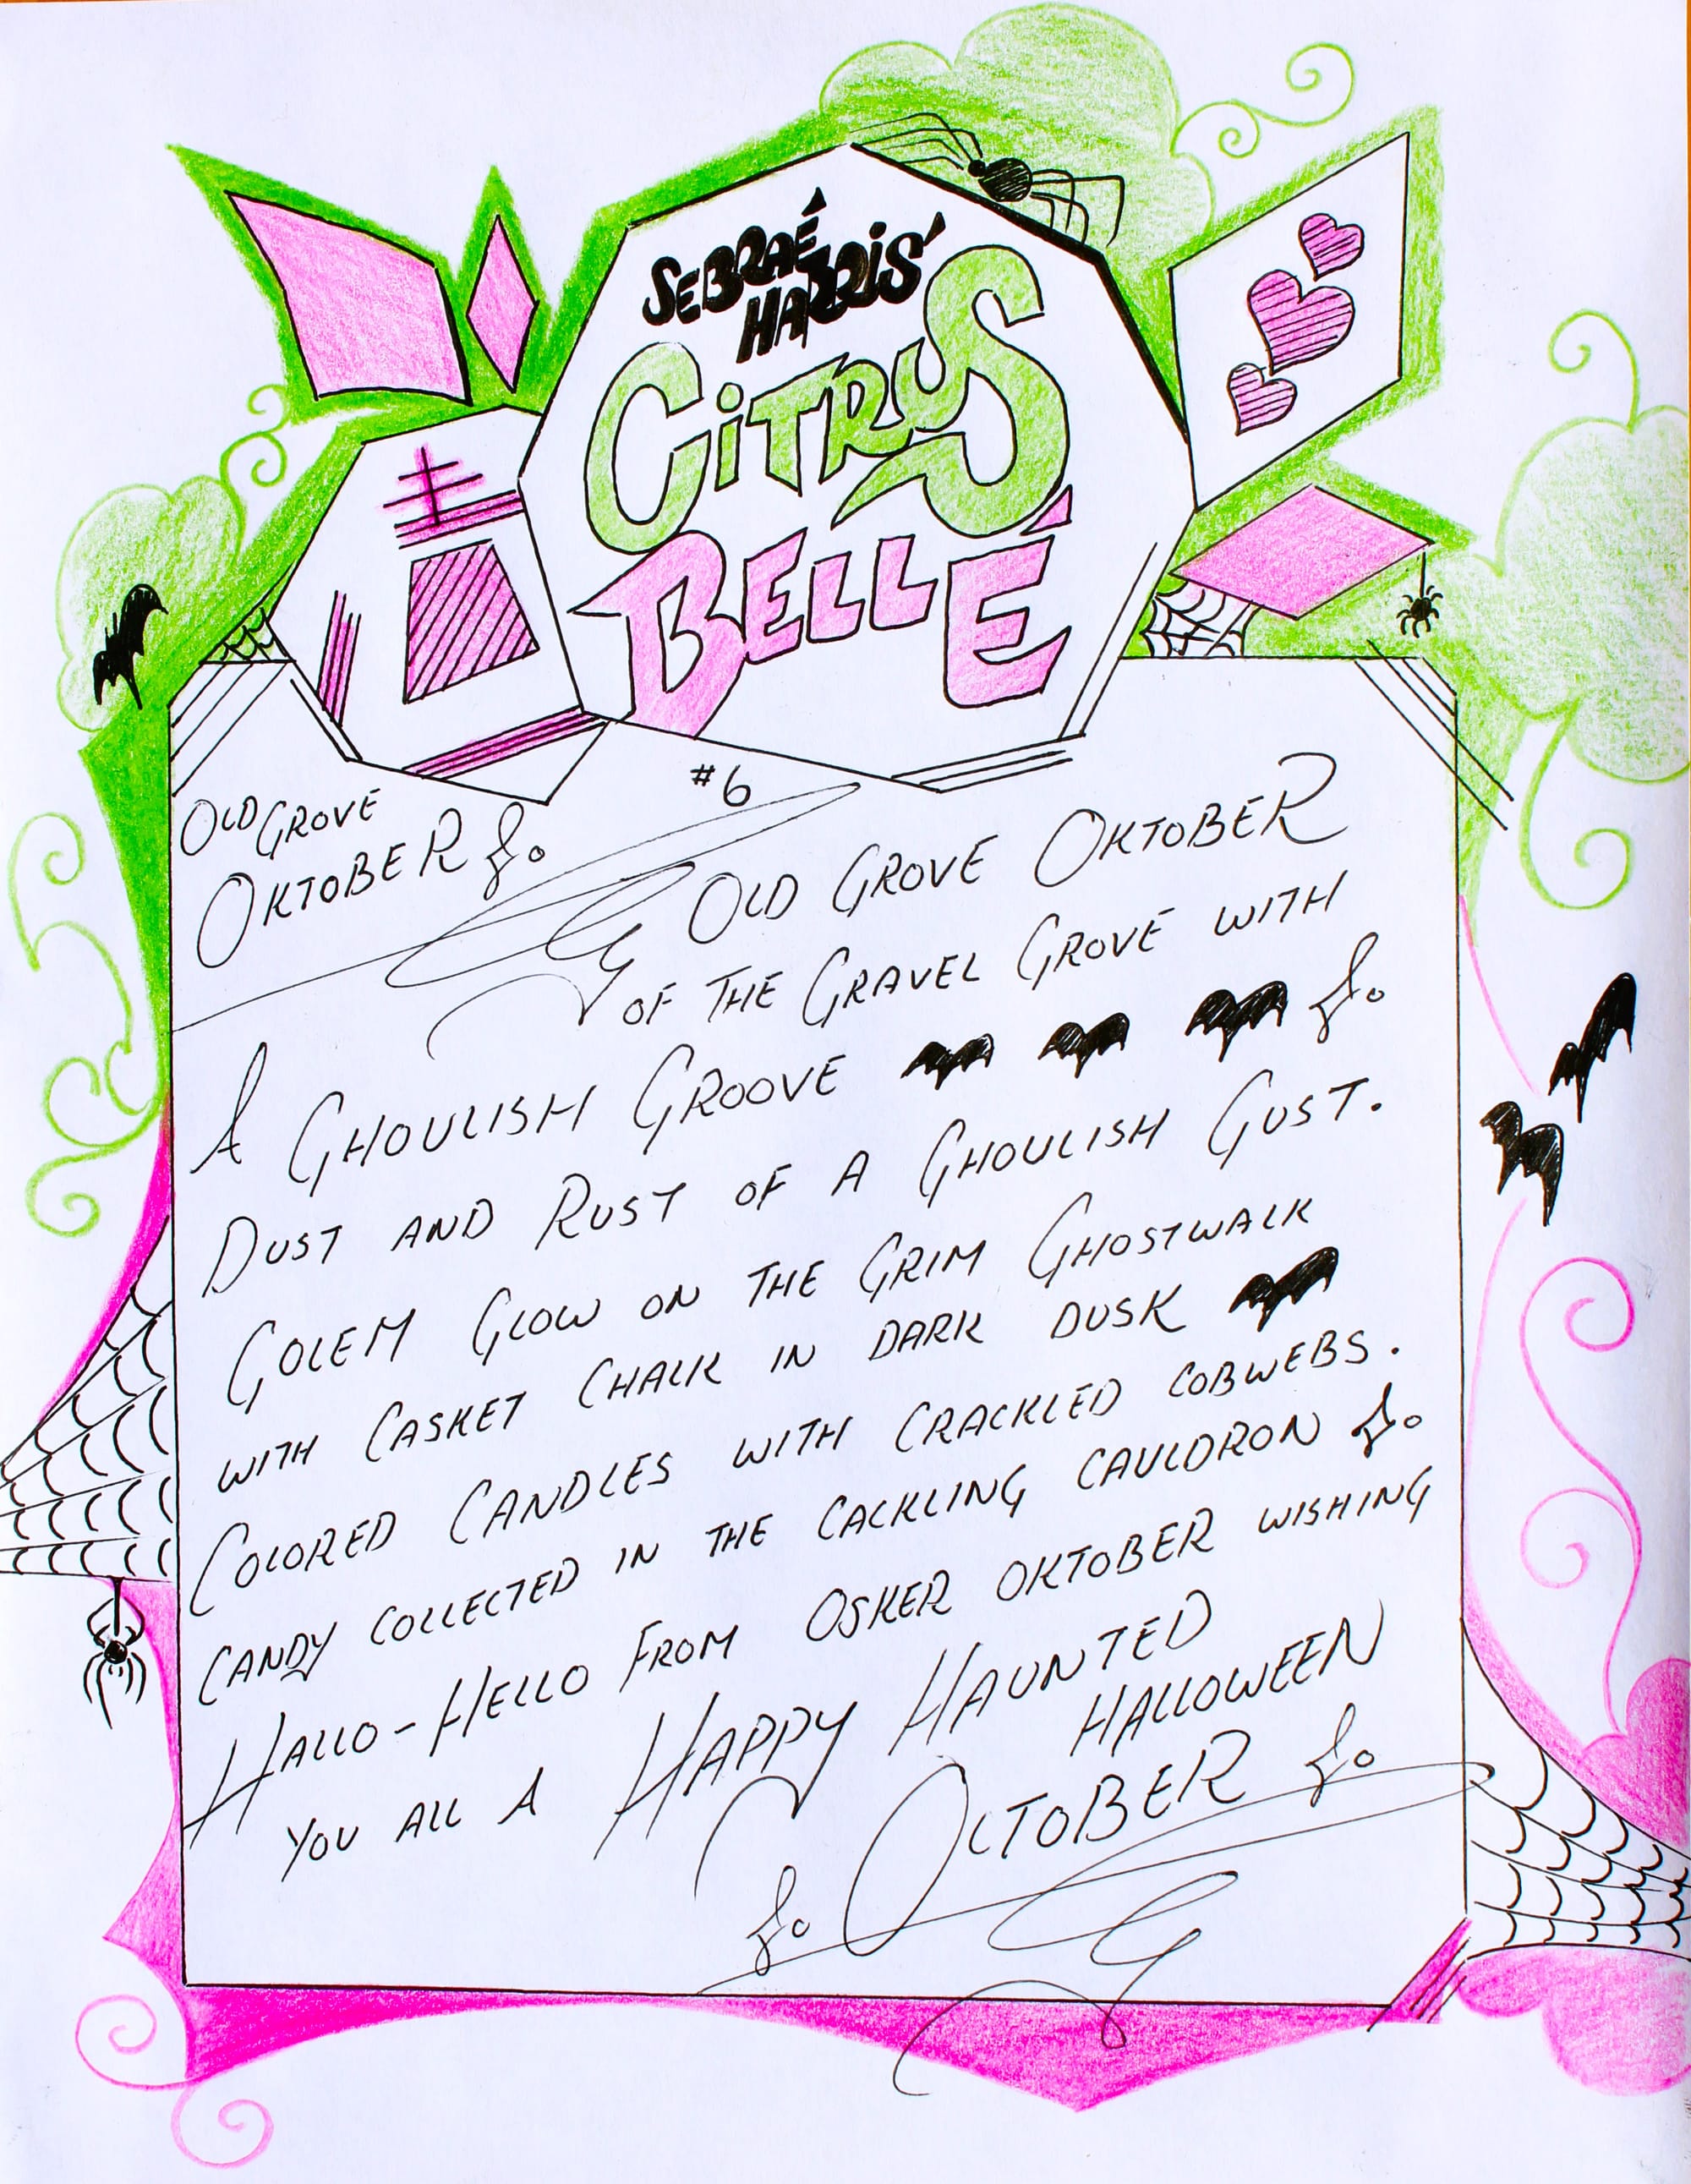 SEBRAÉ
HARRIS'
CiTRUS
BELLÉ
#6
OLD GROVE
OKTOBER
OLD GROVE OKTOBER
OF THE GRAVEL GROVE WITH
A GHOULISH GROOVE
DUST AND RUST OF A GHOULISH GUST.
GOLEM GLOW ON THE GRIM GHOSTWALK
WITH CASKET CHALK IN DARK DUSK
COLORED CANDLES WITH CRACKLED COBWEBS.
CANDY COLLECTED IN THE CACKLING CAULDRON
HALLO-HELLO FROM OSKER OKTOBER WISHING
YOU ALL A HAPPY HAUNTED
HALLOWEEN
OCTOBER